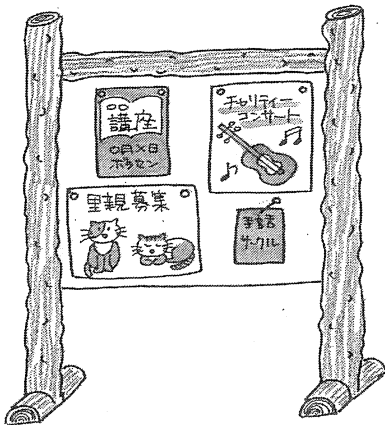 ○○
講座
○月×日
ボラセン
チャリティー
コンサート
里親募集
手話
サークル